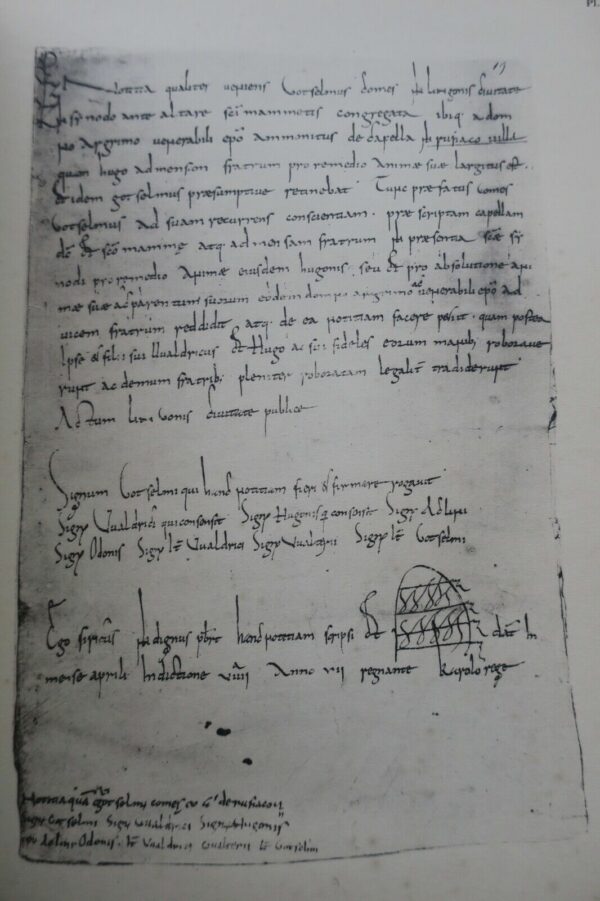 Pl.
19
Notitia qualiter veniens Gotselmus comes in lingonis civitate
in synodo ante altare sci mammetis congregata ibiq; a dom
no Argrimo venerabili epo ammonitus de capella in rufiaco villa
quam hugo ad mensam fratrum pro remedio animae suae largitus est
et idem gotselmus praesumptive retinebat Tunc praefatus comes
Gotselmus ad suam recurrens conscientiam praescriptam capellam
do et sco mamme atq; ad mensam fratrum in praesentia scae sy
nodi pro remedio animae eiusdem hugonis seu et pro absolutione ani
mae suae ac parentum suorum eodem domno argrimo venerabili epo ad
vicem fratrum reddidit atq; de ea notitiam facere petiit quam postea
ipse et filii sui Uualdricus et Hugo ac sui fideles eorum manib; roborave
runt ac demum fratrib; pleniter roboratam legalit tradiderunt
Actum lingonis civitate publice
Signum Gotselmi qui hanc notitiam fieri et firmare rogavit
Sign Uualdrici qui consensit Sign Hugonis q consensit Sign
Sign Odonis Sign It Uualdrici Sign Sign It Gotselmi
Ego indignus pbr hanc notitiam scripsi et dat in
mense aprili Indictione viiii Anno vii regnante Karolo rege
Notitia qua gotselmus comes de rufiaco
Sign Gotselmi Sign Uualdrici Sign Hugonis
Odonis It Uualdrici Gualterii It Gotselmi